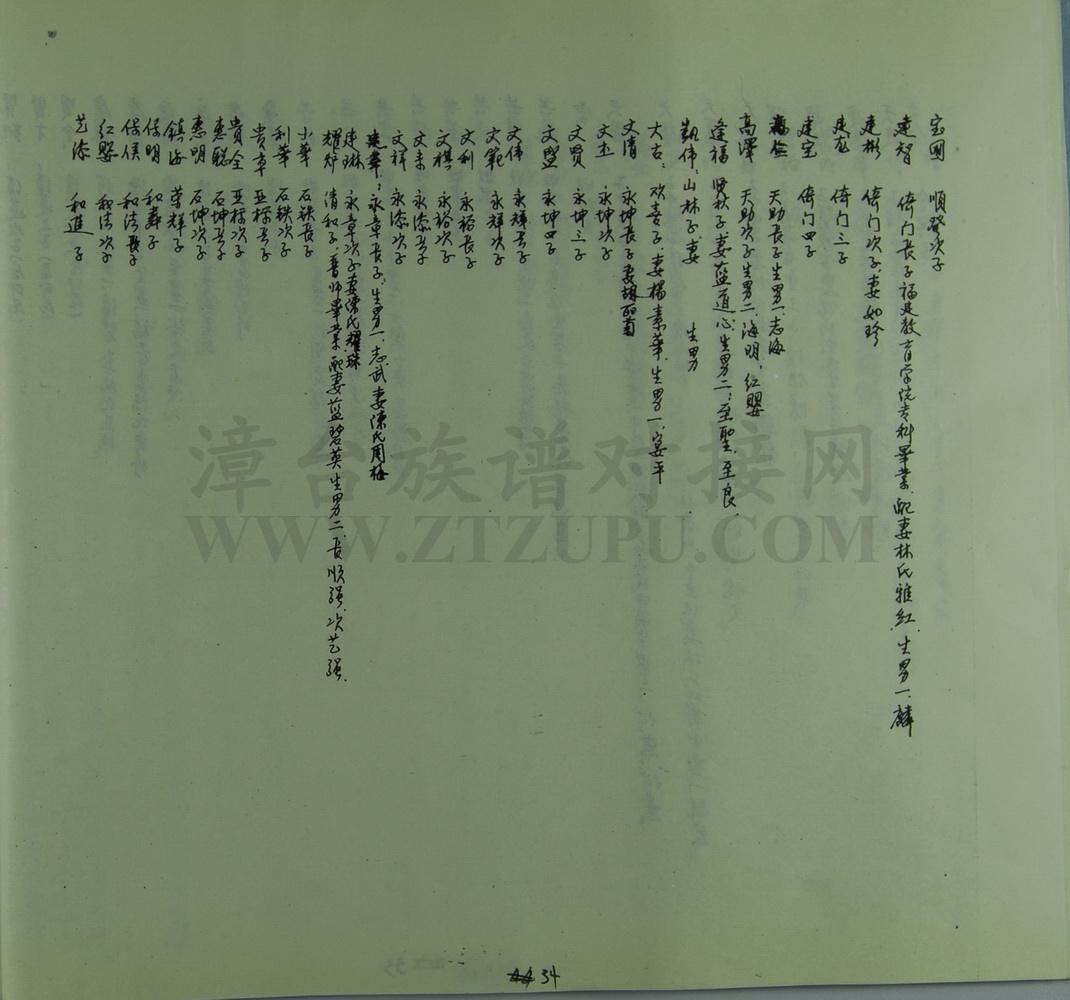 宝国 順發次子
建智 倚门长子福建教育学院专科毕業.配妻林氏雅紅.生男一.麟
建彬 倚门次子.妻如珍
建龙 倚门三子
建宝 倚门四子
天助长子生男一.志海
高澤 天助次子生男二.海明,红嬰
逢福 贤秋子妻蓝道心.生男二:至聖.至良
凱伟:山林子.妻 生男
大吉:欢喜子.妻楊素華.生男一.宴平
文清 永坤长子妻胡丽菊
文玉 永坤次子
文贤 永坤三子
文盟 永坤四子
文伟 永輝长子
文範 永輝次子
文利 永裕長子
文棋 永裕次子
文來 永添长子
文祥 永添次子
建華:永章长子.生男一.志武妻陳氏周梅
建琳 永章次子妻陳氏耀珠
耀炉 清和子.晋师畢業配妻蓝碧英生男二.长顺强.次艺强
小華 石铁長子
利華 石铁次子
贵章 亚标长子
貴全 亚标次子
惠聪 石坤长子
惠明 石坤次子
鎮海 荣輝子
保明 和壽子
保侯 和法長子
红嬰 和法次子
艺添 和進子
34
漳台族谱对接网
WWW.ZTZUPU.COM